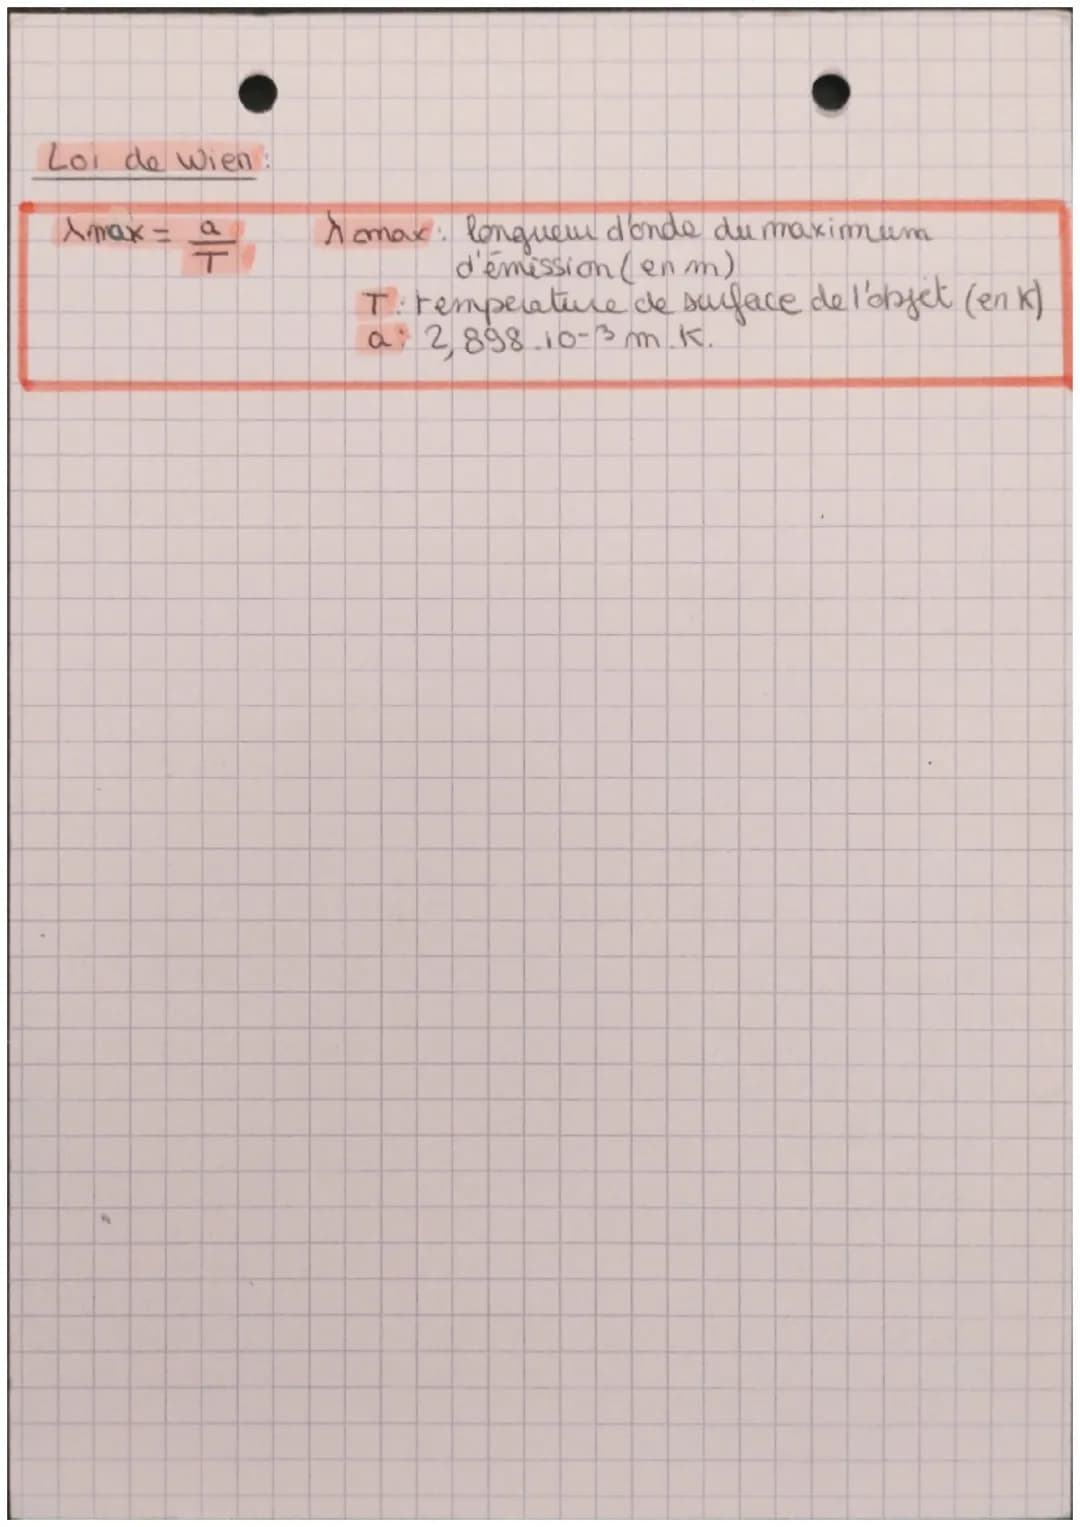 Loi de Wien:
λmax = a/T λmax: longueur d'onde du maximum
d'émission (en m)
T: température de surface de l'objet (en K)
a: 2,898.10-3 m.K.